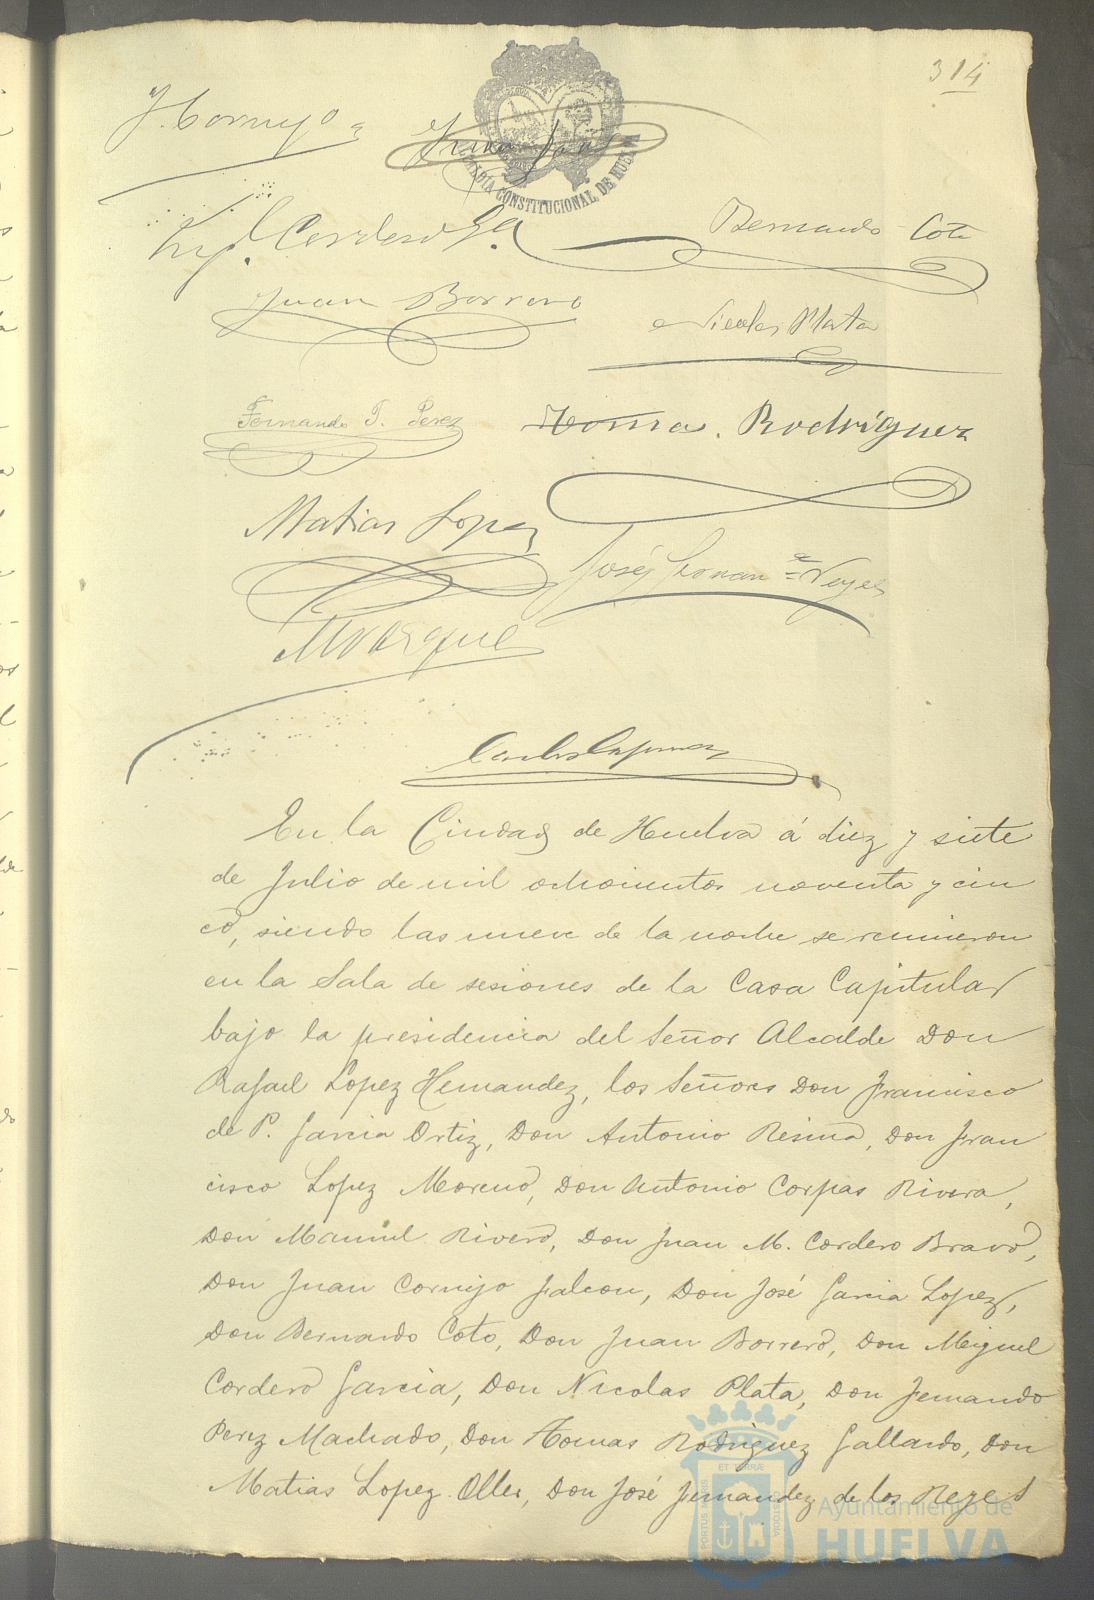 314
J. Cornejo
ALCALDIA CONSTITUCIONAL DE HUELVA
Juan
Mig.l Cordero Ga
Bernardo Coto
Juan Borrero
Nicolas Plata
Fernando T. Perez
Tomas Rodriguez
Matias Lopez
José Fernan.z Reyes
M Vazquez
Carlos
En la Ciudad de Huelva á diez y siete
de Julio de mil ochocientos noventa y cin
co, siendo las nueve de la noche se reunieron
en la Sala de sesiones de la Casa Capitular
bajo la presidencia del Señor Alcalde Don
Rafael Lopez Hernandez, los Señores Don Francisco
de P. Garcia Ortiz, Don Antonio Resina, Don Fran
cisco Lopez Moreno, Don Antonio Corpas Rivera,
Don Manuel Rivero, Don Juan M. Cordero Bravo,
Don Juan Cornejo Falcon, Don José Garcia Lopez,
Don Bernardo Coto, Don Juan Borrero, Don Miguel
Cordero Garcia, Don Nicolas Plata, Don Fernando
Perez Machado, Don Tomas Rodriguez Gallardo, Don
Matias Lopez Oller, Don José Fernandez de los Reyes
PORTUS MARIS ET TERRÆ CUSTODIA
Ayuntamiento de
HUELVA